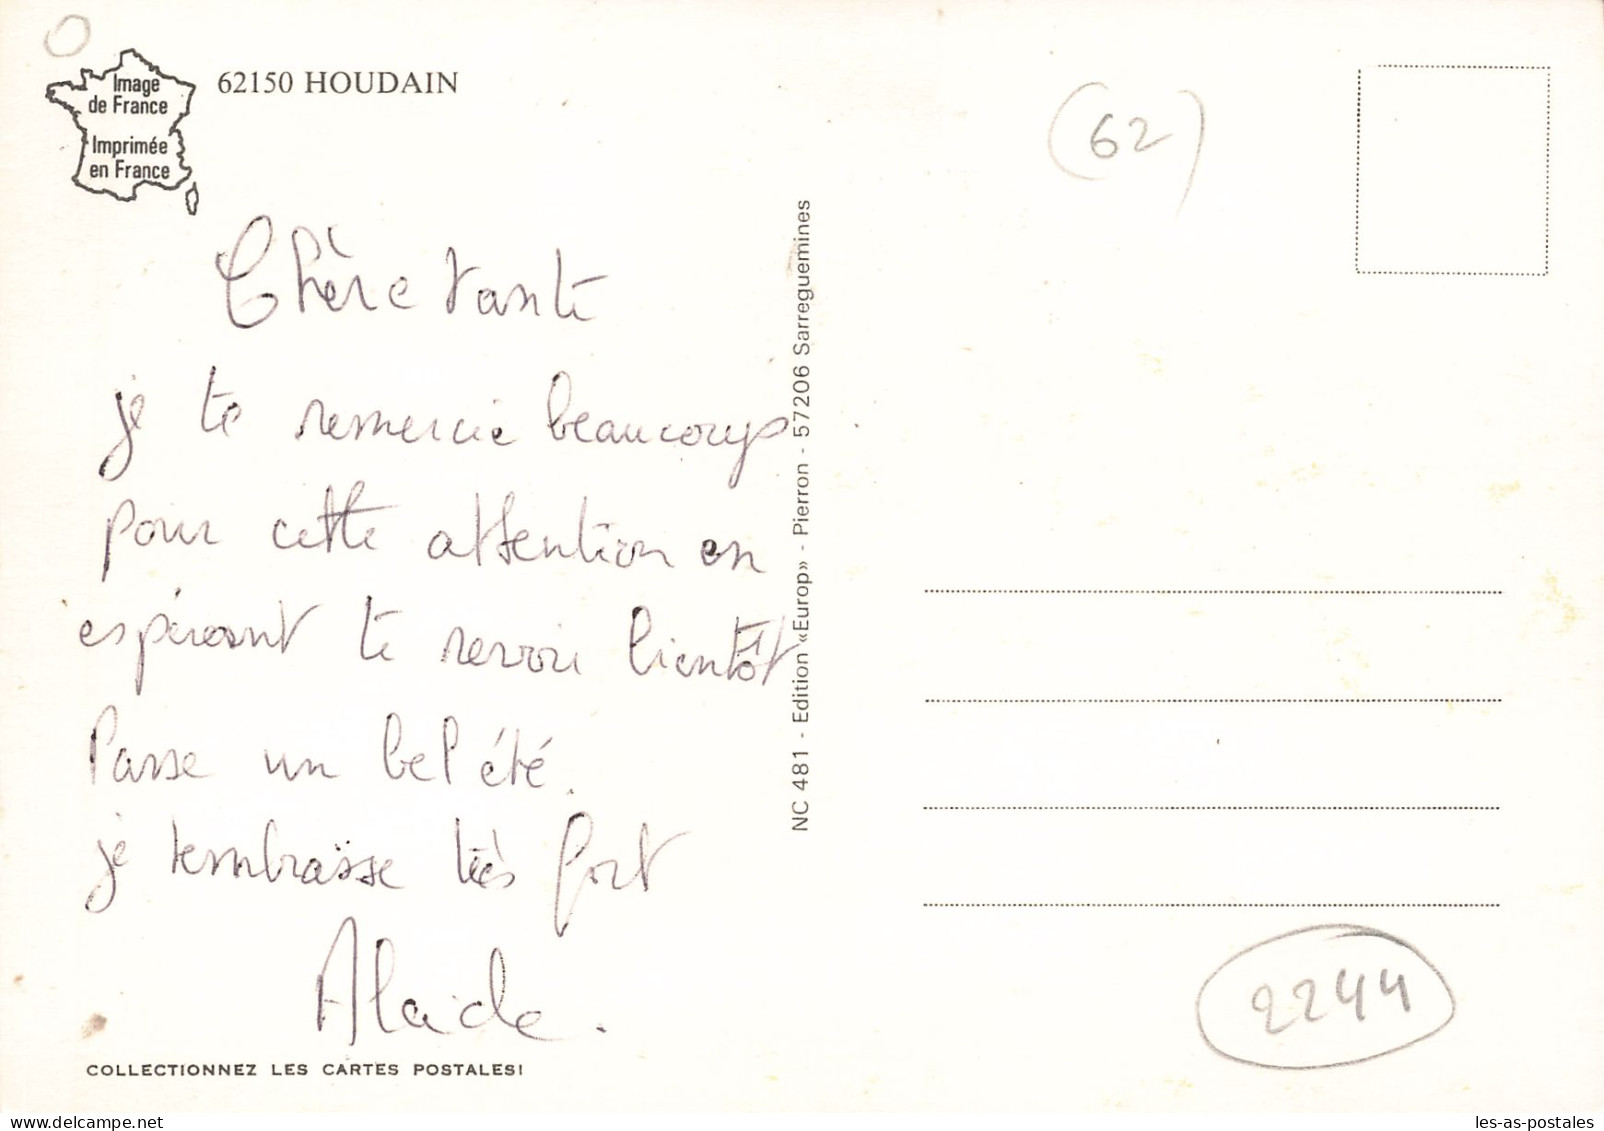 Image
de France
Imprimée
en France
62150 HOUDAIN
(62)
Chère tante
je te remercie beaucoup
pour cette attention en
espérant te revoir bientôt
Passe un bel été.
je t'embrasse très fort
Alaide.
COLLECTIONNEZ LES CARTES POSTALES!
NC 481 - Edition «Europ» - Pierron - 57206 Sarreguemines
2244
les-as-postales